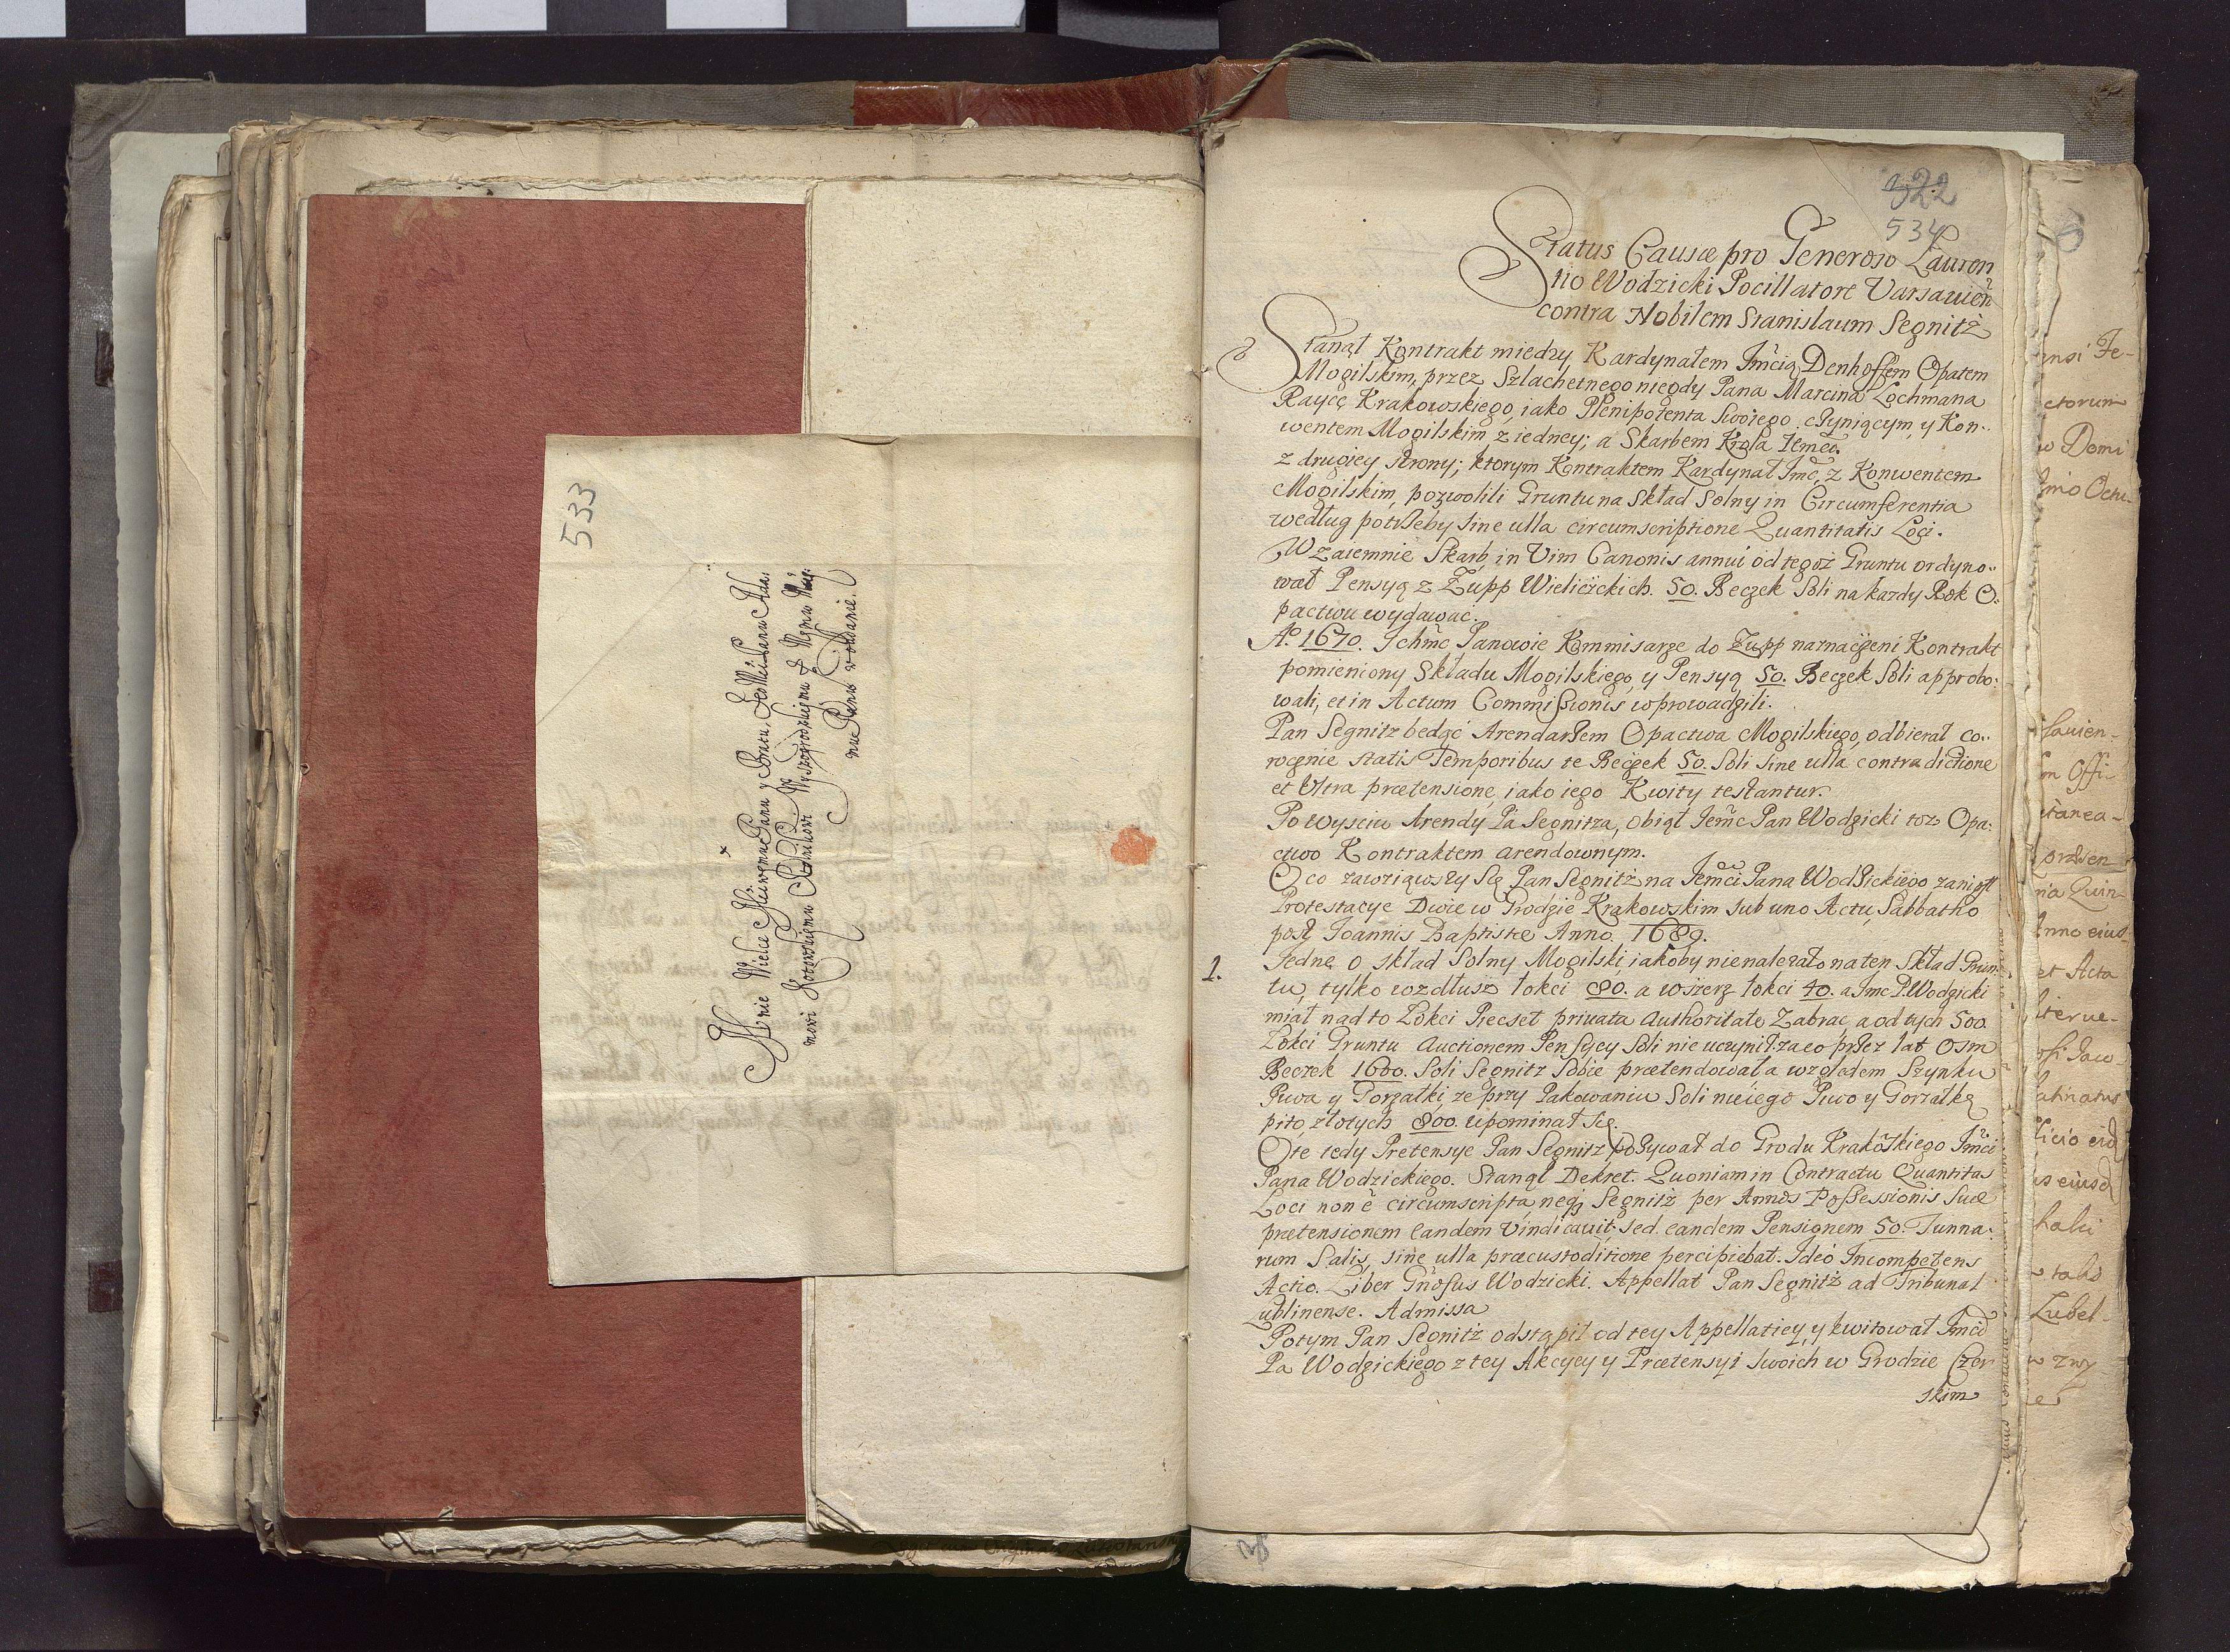 533
Mnie Wielce Młćiwęmu Panu y Bratu Je
mnie Panu oddanie.
322
534
Status Causæ pro Generoso Lauren
tio Wodzicki Pocillatore Varsavień
contra Nobilem Stanislaum Segnitż
Stanął Kontrakt miedzy Kardynałem Jmcią Denhoffem Opatem
Mogilskim, przez Szlachetnego niegdy Pana Marcina Lochmana
Raycę Krakowskiego, iako Plenipotenta Swoiego czyniącym, y Kon-
wentem Mogilskim, z iedney; a Skarbem Krola Jeme͠o.
z drugiey strony; ktorym Kontraktem Kardynał Jmć, z Konwentem
Mogilskim, pozwolili Gruntu na Skład Solny in Circumferentia
według potrzeby sine ulla circumscriptione Quantitatis Loci.
Wzaiemnie Skarb, in Vim Canonis annui od tegoż Gruntu ordyno-
wał Pensyą z Zupp Wielicżkich. 50. Beczek Soli na kazdy Rok O-
pactwu wydawac.
Aº. 1670. Ichmć Panowie Kommisarze do Zupp naznaczeni Kontrakt
pomieniony Składu Mogilskiego, y Pensyą 50. Beczek Soli approbo-
wali, et in Actum Commissionis wprowadzili.
Pan Segnitz bedąc Arendarzem Opactwa Mogilskiego, odbierał co-
rocznie statis Temporibus te Beczek 50. Soli sine ulla contradictione
et Ultra prætensione, iako iego Kwity testantur.
Po wysciu Arendy Pa Segnitza, obiął Jemć Pan Wodzicki toz Opa-
ctwo Kontraktem arendownym.
O co zawziąwszy Się Pan Segnitż na Jemci Pana Wodzickiego zaniosł
Protestacye Dwie w Grodzie Krakowskim sub uno Actu, Sabbatho
post Joannis Baptistæ Anno 1689.
1. Jedne o skład Solny Mogilski, iakoby nienalezało na ten Skład Grun-
tu, tylko wzdłusz łokci 80. a wszerz łokci 40. a Jmc P. Wodzicki
miał nad to Łokci Piecset privata Authoritate Zabrac, a od tych 500.
Łokci Gruntu Auctionem Pensyey Soli nie uczynił. za co przez lat Osm
Beczek 1600. Soli Segnitz Sobie prætendował a względem Szynku
Piwa y Gorzałki, ze przy Pakowaniu Soli nie iego Piwo y Gorzałkę
pito, złotych 800. upominał Się.
O te tedy Pretensye Pan Segnitz Pozywał do Grodu Krakoskiego Jmci
Pana Wodzickiego. Stanął Dekret. Quoniam in Contractu Quantitas
Loci non e͠ circumscripta, neq; Segnitż per Annos Possessionis suæ
prætensionem eandem vindicavit; sed eandem Pensionem 50. Tunna-
rum Salis, sine ulla præcustoditione percipiebat. Ideo Incompetens
Actio. Liber Gnosus Wodzicki. Appellat Pan Segnitż ad Tribunal
Lublinense. Admissa
Potym Pan Segnitż odstąpił od tey Appellatiey, y kwitował Jmci
Pa Wodzickiego z tey Akcyey y Prætensyi Swoich w Grodzie Czer
skim
ctorum
w Domi
Anno eius
et Acta
Lubel-
w zwy